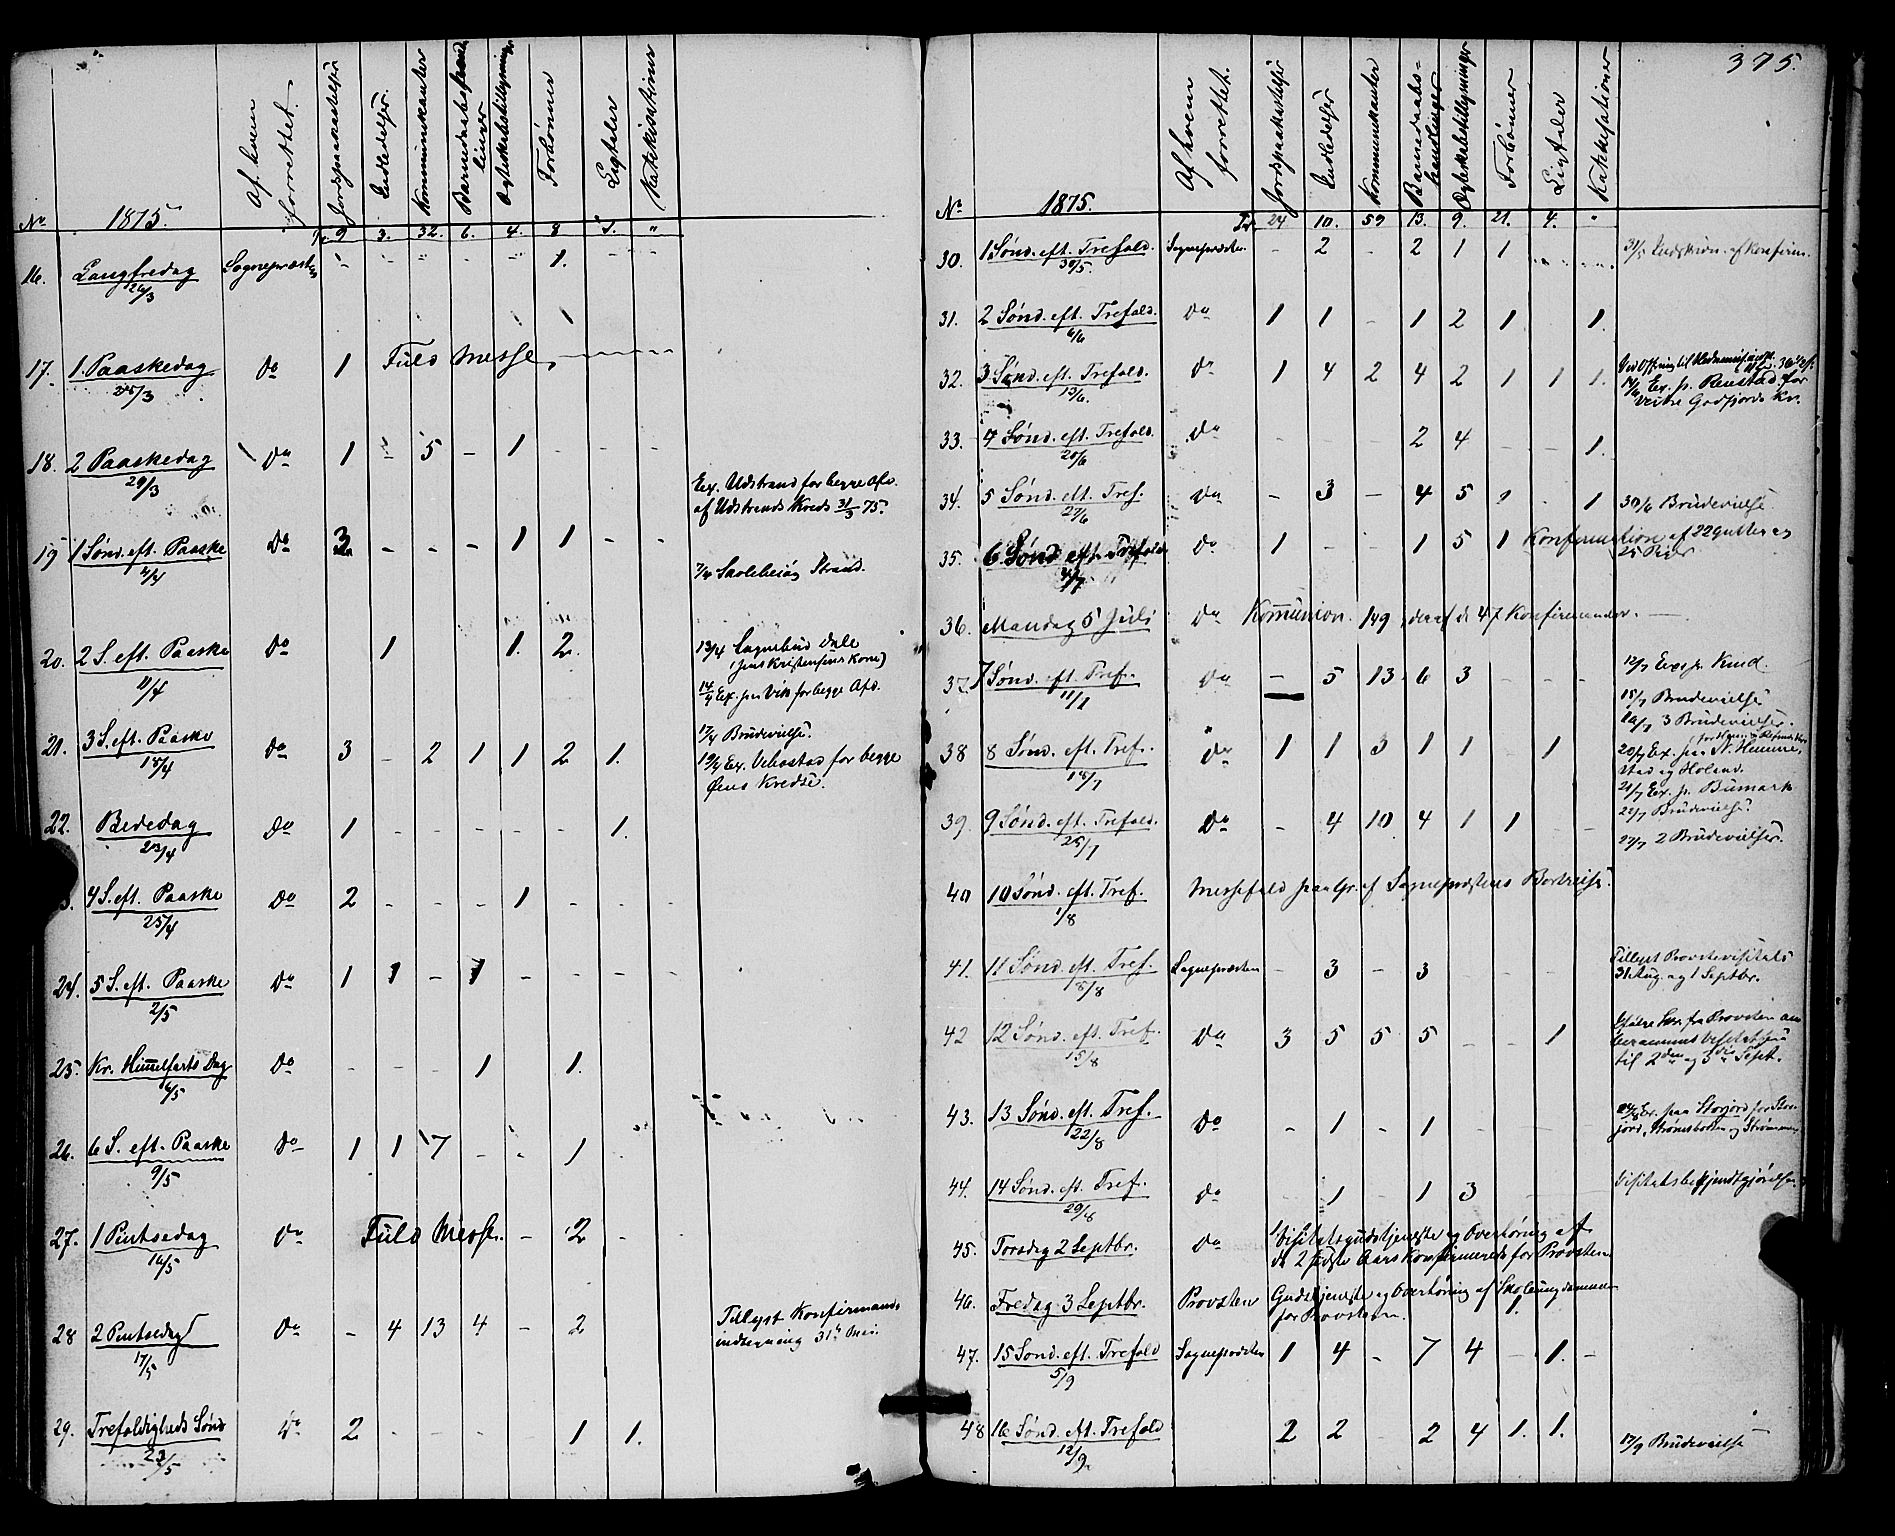 No
1875.
Af hvem
forrettet.
Jordspaakastelser
Indledelser.
Kommunikanter
Ægteskabstillysninger
Forbønner
Ligtaler
Katekisationer
Tr. 9 3. 32. 6. 4. 8 5. "
16. Langfredag Sognepræsten " - " " " 1. " "
26/3
17. 1. Paaskedag Do 1 Fuld Messe,
28/3
18. 2 Paaskedag Do 1 - 5 - 1 - - -
29/3
Ex. Udstrand for begge Afd.
af Udstrands Kreds 31/3 75.
19 1 Sønd. eft. Paaske Do 3 - - - 1 1 - -
4/4
20. 2 S. eft. Paaske Do 1 1. 2.
11/4
13/4 Sognebud Dale
(Jens Kristensens Kone)
14/4 Ex. paa Vik for begge Afd.
21. 3 S. eft. Paaske Do 3 - 2 1 1 2 1.
18/4
17/4 Brudevielse.
19/4 Ex. for begge
Øens Kredse.
22. Bededag Do 1 - - - - - 1.
23/4
3. 4 S. eft. Paaske Do 2 - - - 1 - - -
25/4
24. 5 S. eft. Paaske Do 1 1 - 1 - - - -
2/5
25. Kr. Himmelfarts Dag Do - - - 1 1.
6/5
26. 6 S. eft. Paaske Do 1 1 7 - - 1
9/5
27. 1 Pintsedag Do Fuld Messe. - 2 -
16/5
28 2 Pintsedag Do - 4 13 4 - 2
17/5
Tillyst Konfirmand-
indtegning 31te Mai.
29. Trefoldigheds Sønd Do 2 - - - 1 1.
23/5
375.
No
1875.
Af hvem
forrettet.
Jordspaakastelser
Indledelser
Kommunikanter
Barnedaabs-
handlinger
Ægteskabstillysninger
Forbønner
Ligtaler
Katekisationer
Tr. 24 10. 59 13. 9. 21. 4. "
30. 1 Sønd. eft. Trefold. Sognepræsten - 2 2 1 1
30/5
31/5 Indskrivn. af Konfirm.
31. 2 Sønd. eft. Trefold. Do 1 1 - 1 2 1 1.
6/6
32. 3 Sønd. eft. Trefold. Do 1 4 2 4 2 1 1 1.
13/6.
Ex. p. for
Kr.
33. 4 Sønd. eft. Trefold. Do - - - 2 4 - - 1.
20/6
34. 5 Sønd. eft. Tref. Do - 3 - 4 5 1 - 1
27/6
30/6 Brudevielse
35. 6 Sønd eft. Trefold Do 1 - - 1 5 1 Konfirmation af 22 gutter og
25 Piger
4/7
36. Mandag 5 Juli Do Kommunion. 149, deraf de 47 Konfirmander.
37. 7 Sønd. eft. Tref. Do - 5 13 6 3 - - -
11/7
12/7 Ex. p. Kind.
15/7 Brudevielse
16/7 3 Brudevielser.
38 8 Sønd. eft. Tref. Do 1 1 3 1 1 - 1
18/7
20/7 Ex. paa N. Hemme-
stad og Holand.
21/7 Ex. p. Bumark
39. 9 Sønd. eft. Trefold. Do - 4 10 4 1 1 - -
25/7
22/7 Brudevielse
27/7 2 Brudevielser.
40 10 Sønd. eft. Tref. Messefald paa Gr. af Sognepræstens Bortreise.
1/8
41. 11 Sønd. eft. Tref. Sognepræsten - 3 - 3 - -
8/8
Tillyst Provstevisitats
31 Aug. og 1 Septbr.
42 12 Sønd. eft. Tref. Do 3 5 5 5 - - 1
15/8
Ifølge Skr. fra Provsten om
berammes Visitatsen
til 2den og 3die Sept.
43. 13 Sønd. eft. Tref. Do - 1 - 1 - -
22/8
24/8 Ex. paa Storjord for Stor-
jord, Strømsbotten og Strømmen
44. 14 Sønd. eft. Tref. Do 1 1 3
29/8
Visitatsbekjendtgjørelse.
45. Torsdag 2 Septbr. Do Visitatsgudstjeneste og Overhøring af
de 2 sidste Aars Konfirmerede for Provsten
46. Fredag 3 Septbr. Provsten Gudstjeneste og Overhøring af Skoleungdommen
for Provsten.
47. 15 Sønd. eft. Trefold Sognepræsten 1 4 - 7 4 - 1. -
5/9
48 16 Sønd. eft. Trefold 2 2 - 2 4 1. 1.
12/9
17/9 Brudevielse